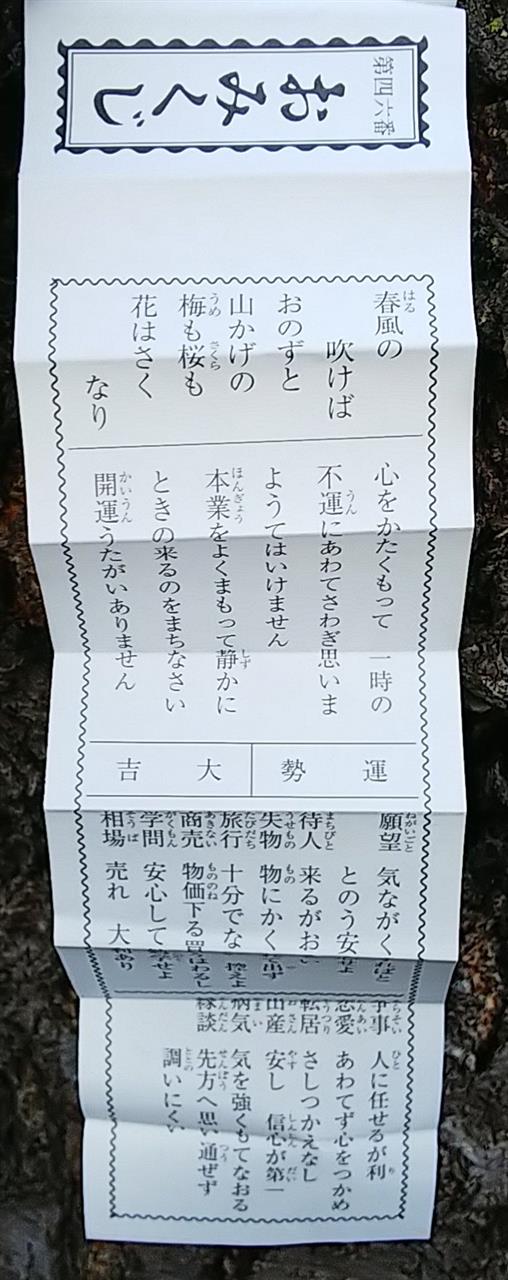 第四六番
おみくじ
春風の
吹けば
おのずと
山かげの
梅も桜も
花はさく
なり
心をかたくもって 一時の
不運にあわてさわぎ思いま
ようてはいけません
本業をよくまもって静かに
ときの来るのをまちなさい
開運うたがいありません
運勢 大吉
願望 気ながく
とのう安
待人 来るがおい
失物 物にかく 出ず
旅行 十分でな 控えよ
商売 物価下る買はわるし
学問 安心して 学せよ
相場 売れ 大 利あり
争事 人に任せるが利
恋愛 あわてず心をつかめ
転居 さしつかえなし
出産 安し 信心が第一
病気 気を強くもてなおる
縁談 先方へ思い通ぜず
調いにくい